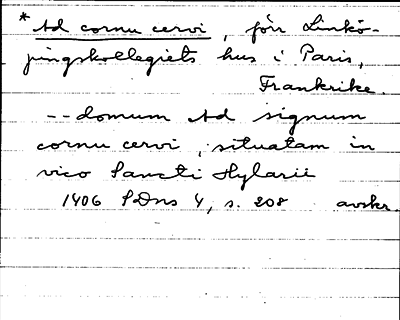 * Ad cornu cervi, förr Linkö-
pingskollegiets hus i Paris,
Frankrike.
-- domum Ad signum
cornu cervi, situatam in
vico Sancti Hylarii
1406 SDns 4, s. 208 avskr.